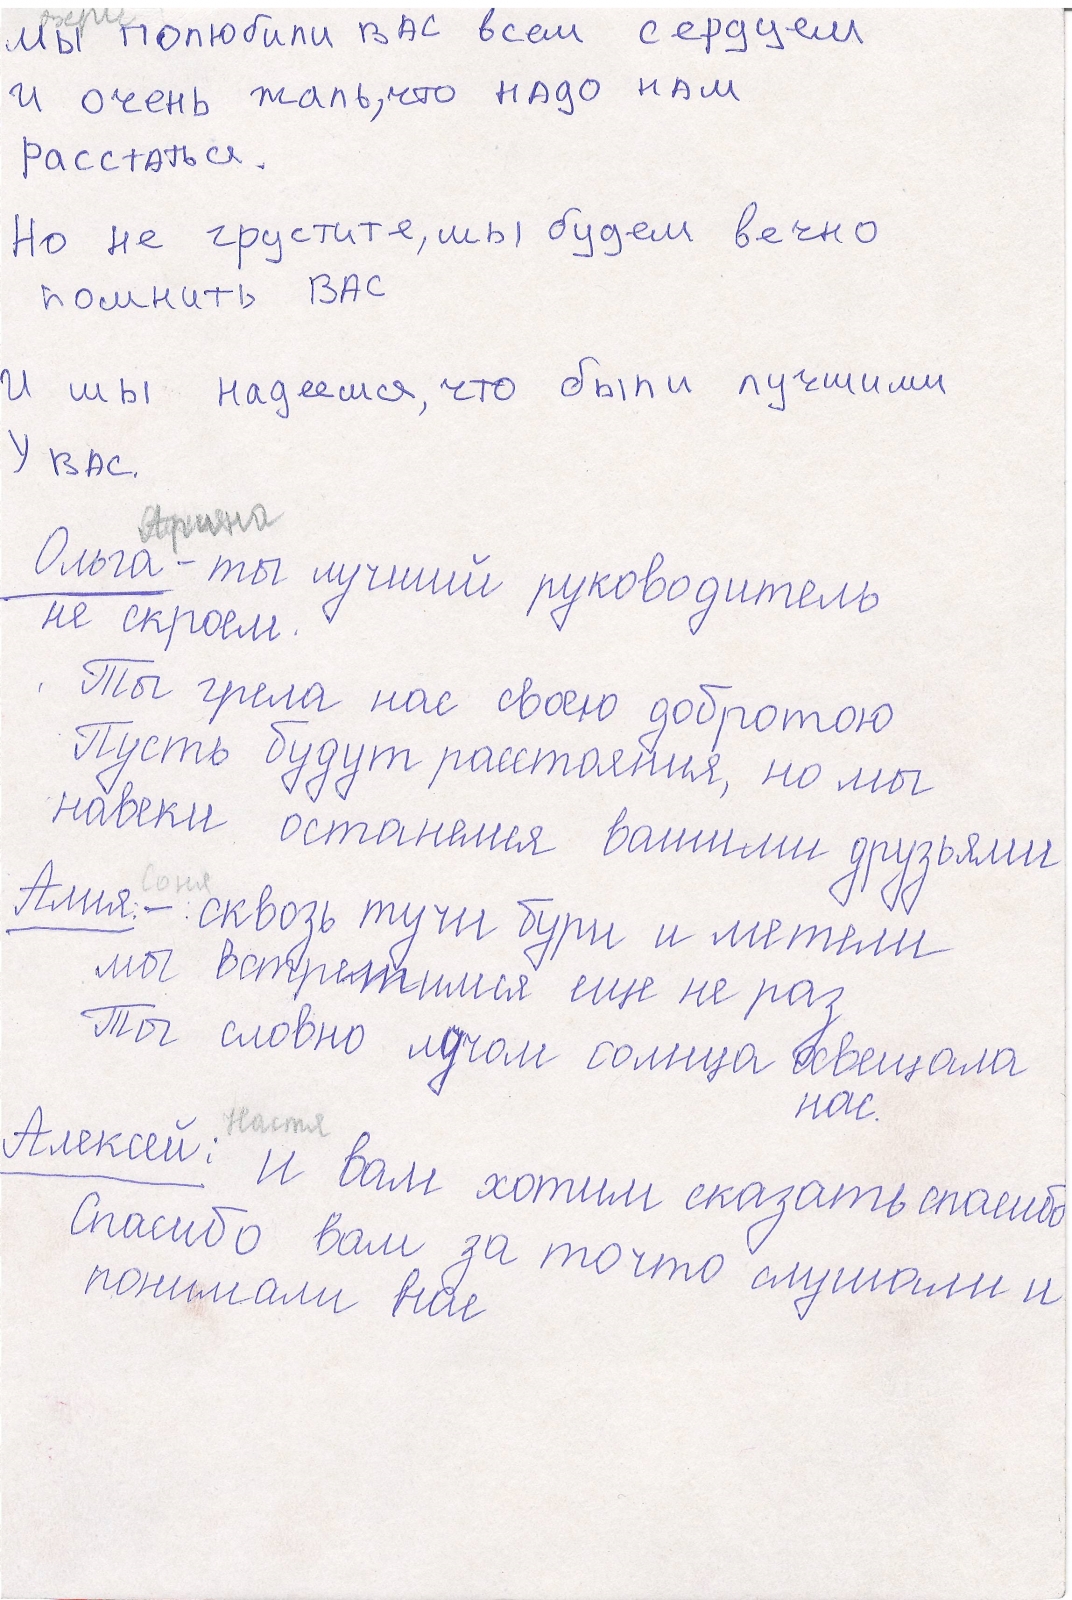 мы полюбили ВАС всем сердцем
и очень жаль, что надо нам
расстаться.
Но не грустите, мы будем вечно
помнить ВАС
И мы надеемся, что были лучшими
у ВАС.
Ариана
Ольга - ты лучший руководитель
не скроем.
Ты грела нас своею добротою
Пусть будут расстояния, но мы
навеки останемся вашими друзьями
Соня
Алия: - сквозь тучи бури и метели
мы встретимся еще не раз
Ты словно лучом солнца освещала
нас.
Настя
Алексей: И вам хотим сказать спасибо
Спасибо вам за то что слушали и
понимали нас